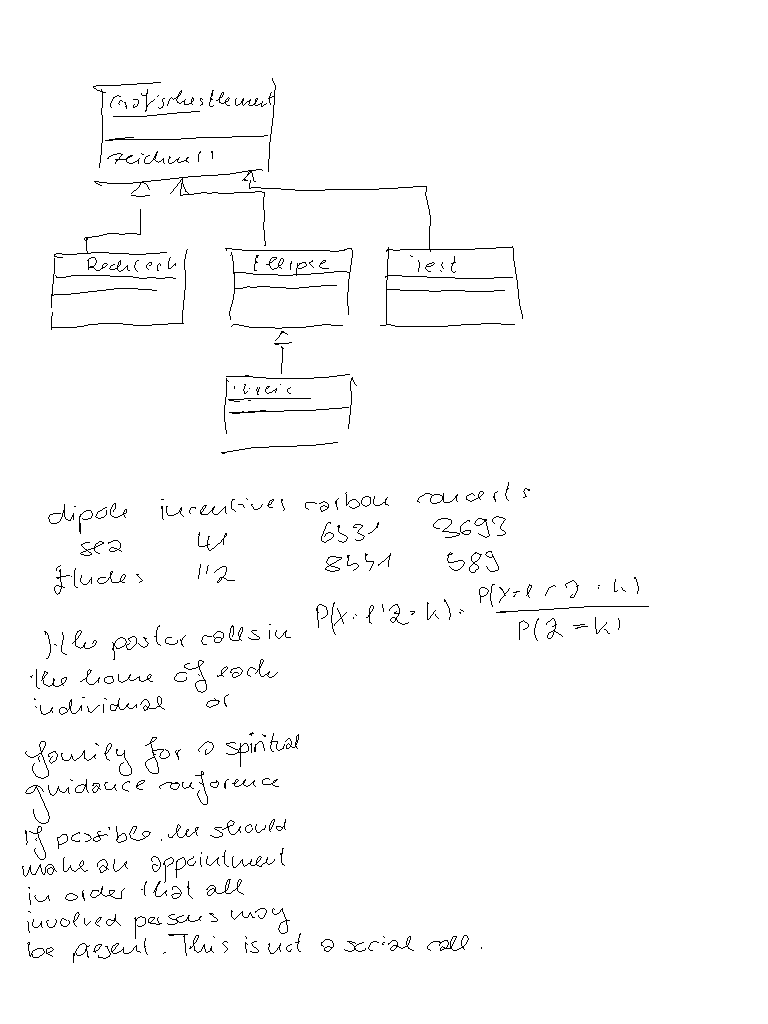 zeichne()
Rechteck
Ellipse
Text
dipole incentives carbon concerts
sea 41 6531 3693
Etudes 112 8551 589
P(X=l|Z=k)=P(X=l∩Z=k)/P(Z=k)
the pastor calls in
the home of each
individual or
family for a spiritual
guidance conference
If possible, he should
make an appointment
in order that all
involved persons may
be present. This is not a social call.